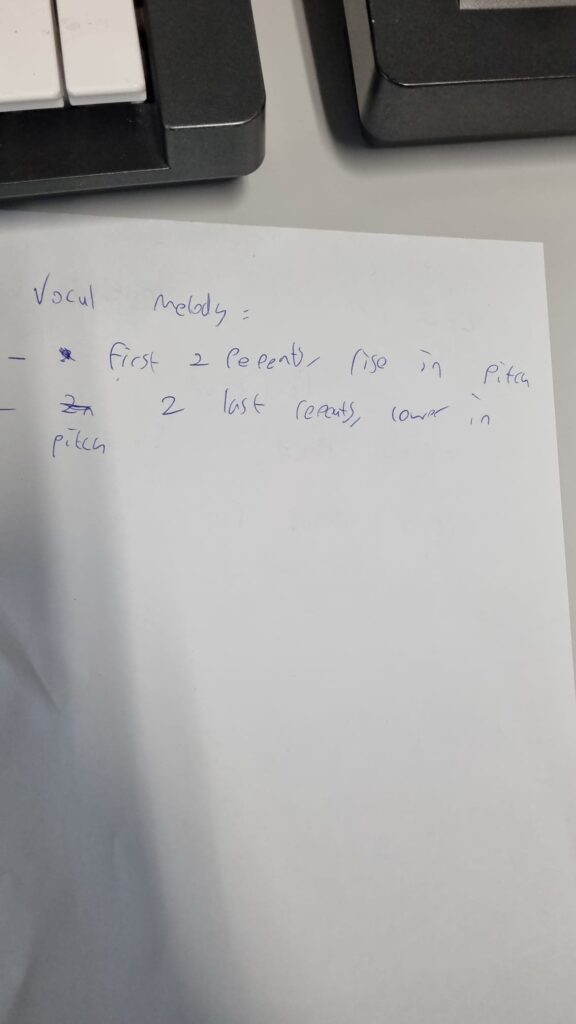 Vocal Melody:
- First 2 repeats, rise in pitch
- 2 last repeats, lower in
pitch